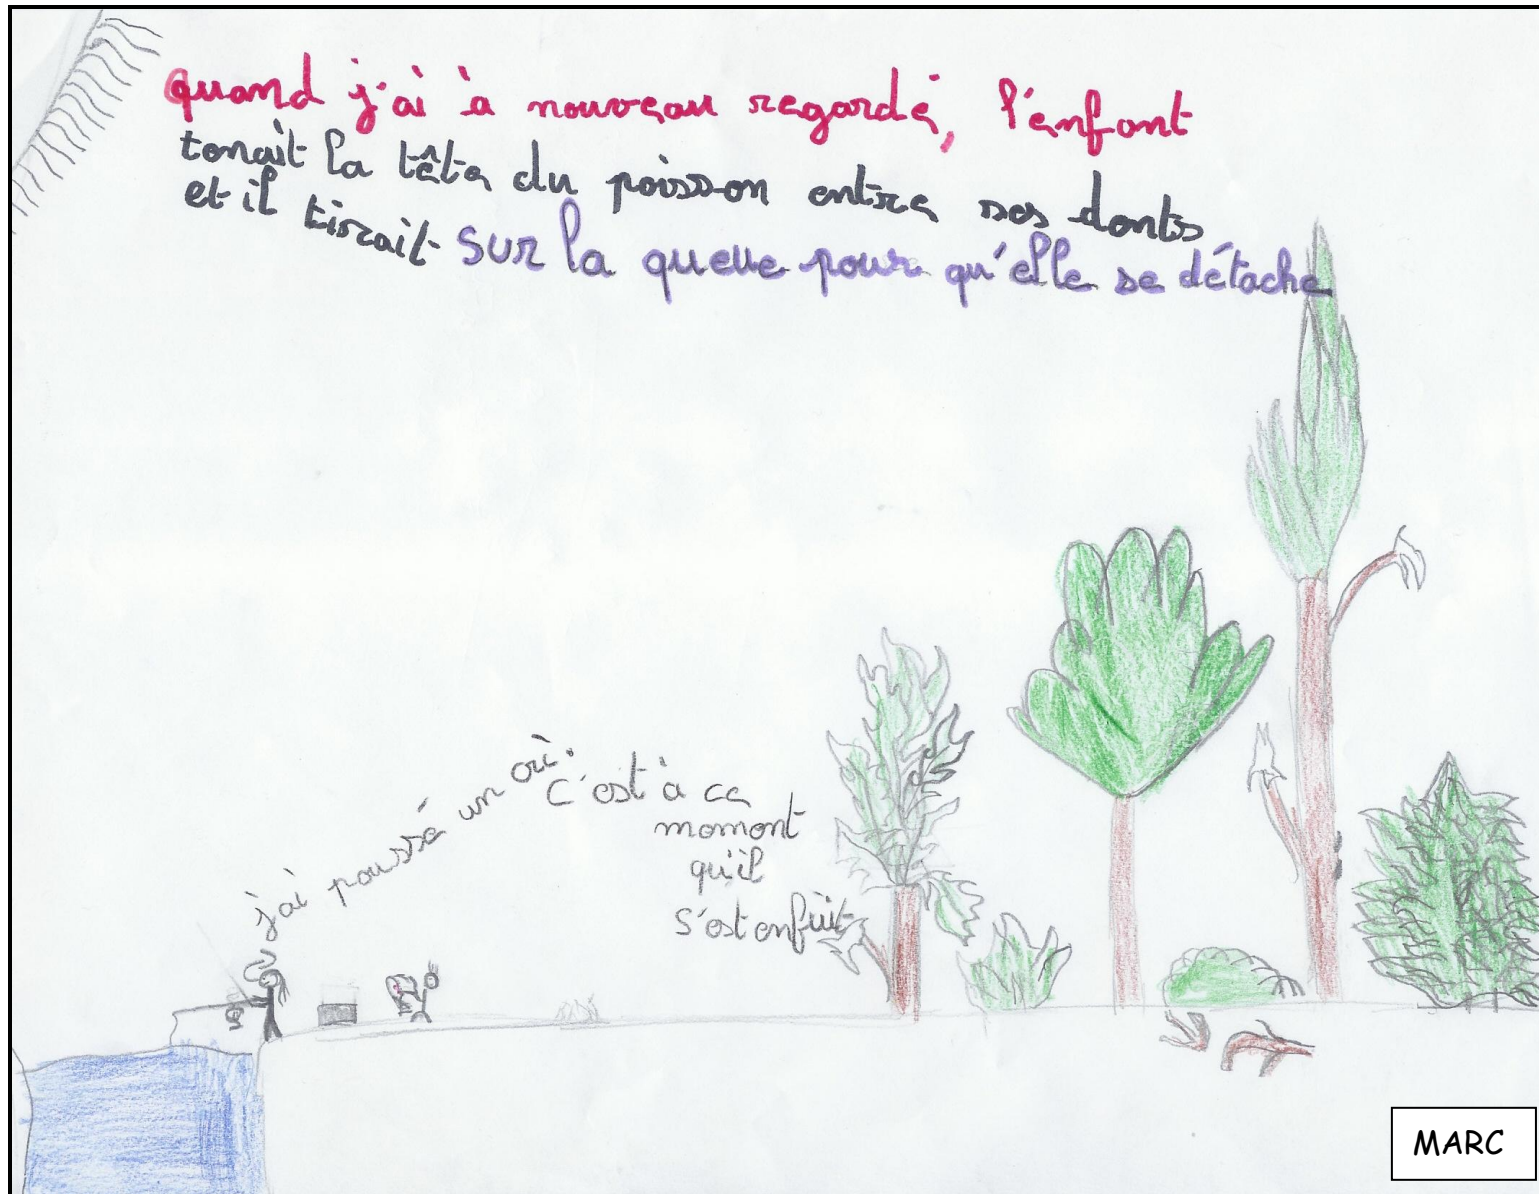 quand j'ai à nouveau regardé, l'enfant
tenait la tête du poisson entre ses dents
et il tirait sur la queue pour qu'elle se détache
j'ai poussé un cri.
C'est à ce
moment
qu'il
s'est enfuit
MARC